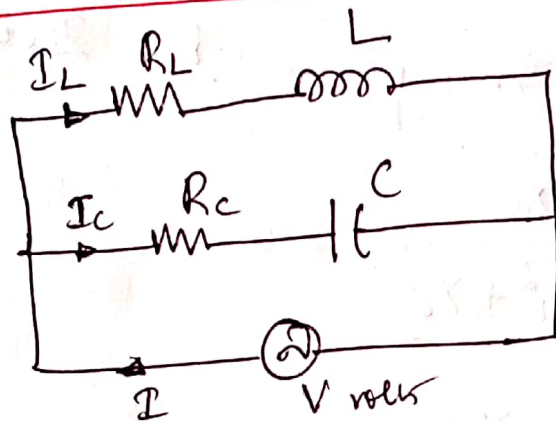 L
I_L R_L
I_C R_C C
I V volts